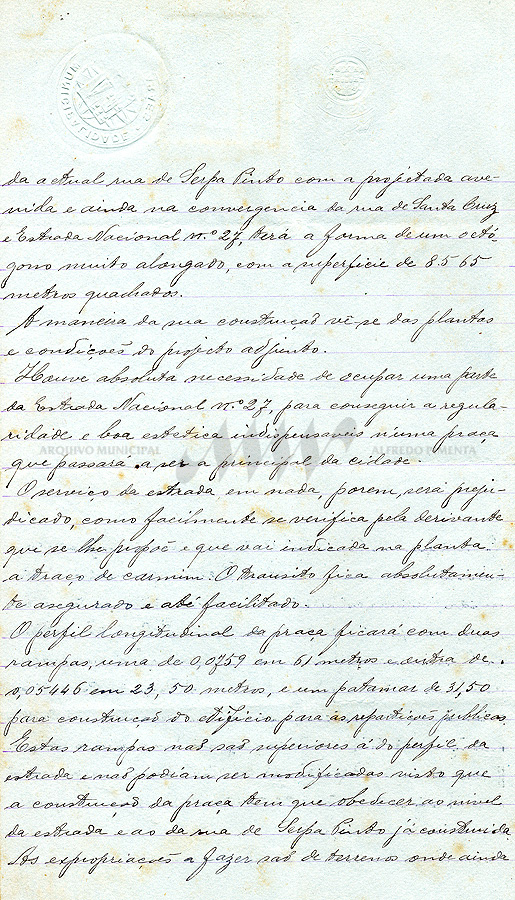 da actual rua de Serpa Pinto com a projetada ave-
nida e ainda na convergencia da rua de Santa Cruz
e Estrada Nacional n.º 27, terá a forma de um octó
gono muito alongado, com a superficie de 8.565
metros quadrados.
A maneira da sua construcão vê-se das plantas
e condições do projecto adjunto.
Houve absoluta necessidade de ocupar uma parte
da Estrada Nacional n.º 27, para conseguir a regula-
ridade e boa estetica indispensaveis n'uma praça
ARQUIVO MUNICIPAL ALFREDO PIMENTA
que passará a ser a principal da cidade.
O serviço da estrada em nada, porem, será preju-
dicado, como facilmente se verifica pela derivante
que se lhe propõe e que vai indicada na planta
a traço de carmim. O transito fica absolutamen-
te asegurado e até facilitado.
O perfil longitudinal da praça ficará com duas
rampas, uma de 0,0759 em 61 metros e outra de
0,05446 em 23,50 metros, e um patamar de 31,50
para construcão do edificio para as repartições publicas.
Estas rampas não são superiores á do perfil da
estrada e não podiam ser modificadas visto que
a construção da praça tem que obedecer ao nivel
da estrada e ao da rua de Serpa Pinto já construida.
As expropriações a fazer são de terrenos onde ainda